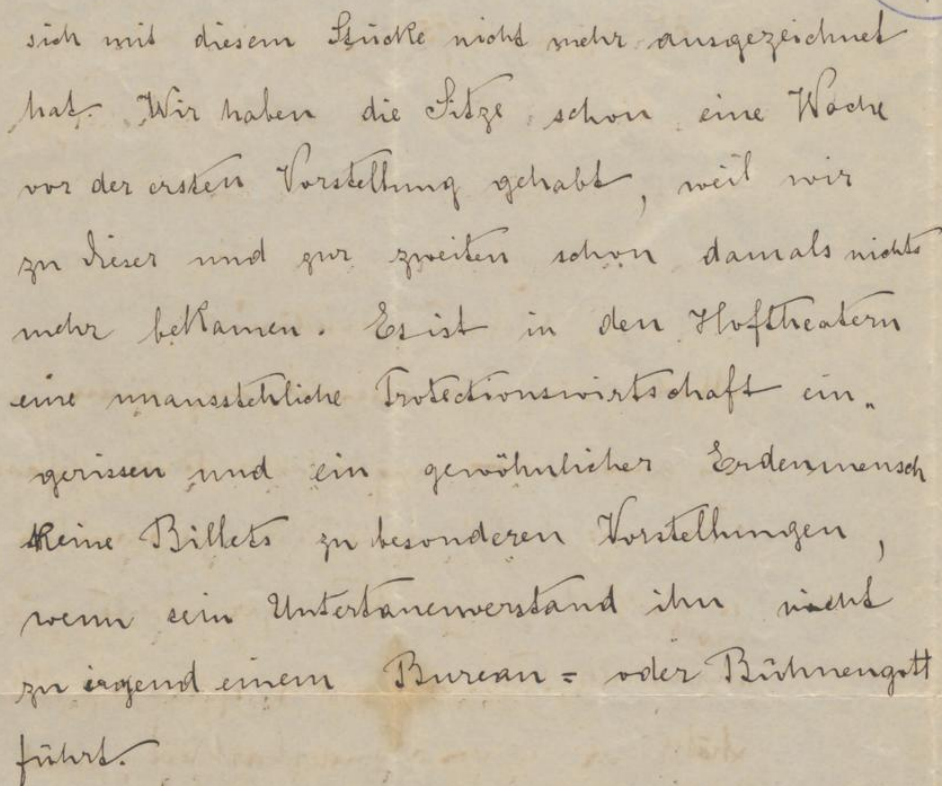 sich mit diesem Stücke nicht mehr ausgezeichnet
hat. Wir haben die Sitze schon eine Woche
vor der ersten Vorstellung gehabt, weil wir
zu dieser und zur zweiten schon damals nichts
mehr bekamen. Es ist in den Hoftheatern
eine unausstehliche Protectionswirtschaft ein„
gerissen und ein gewöhnlicher Erdenmensch
keine Billets zu besonderen Vorstellungen,
wenn sein Untertanenverstand ihn nicht
zu irgend einem Bureau= oder Bühnengott
führt.